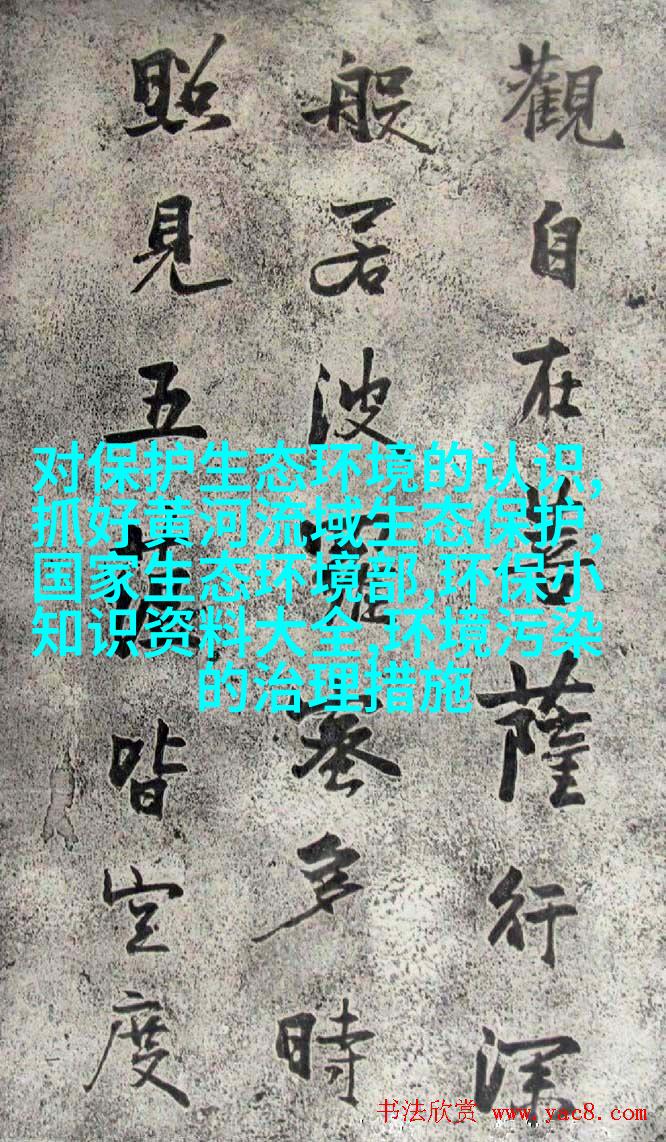 觀自在菩薩行深
般若波羅蜜多時
照見五蘊皆空度
对保护生态环境的认识,
抓好黄河流域生态保护,
国家生态环境部,环保小
知识资料大全,环境污染
的治理措施
书法欣赏 www.yac8.com